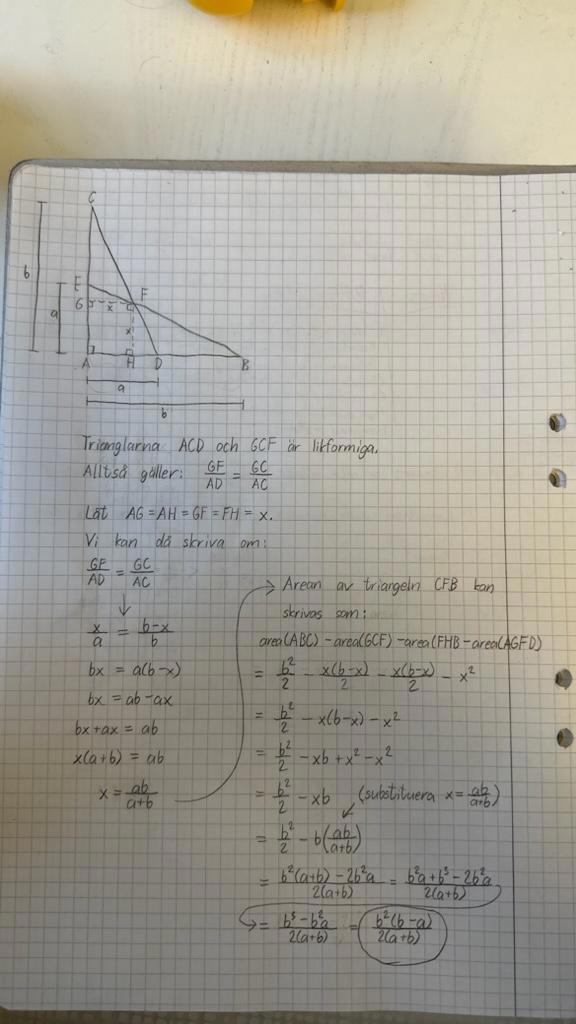 C
b
E
F
G
x
a
x
A
H
D
B
a
b
Trianglarna ACD och GCF är likformiga.
Alltså gäller: GF/AD = GC/AC
Låt AG = AH = GF = FH = x.
Vi kan då skriva om:
GF/AD = GC/AC
↓
x/a = (b-x)/b
bx = a(b-x)
bx = ab - ax
bx + ax = ab
x(a+b) = ab
x = ab/(a+b)
→ Arean av triangeln CFB kan
skrivas som:
area(ABC) - area(GCF) - area(FHB - area(AGFD)
= b²/2 - x(b-x)/2 - x(b-x)/2 - x²
= b²/2 - x(b-x) - x²
= b²/2 - xb + x² - x²
= b²/2 - xb (substituera x = ab/(a+b))
= b²/2 - b(ab/(a+b))
= (b²(a+b) - 2b²a)/(2(a+b)) = (b²a + b³ - 2b²a)/(2(a+b))
= (b³ - b²a)/(2(a+b)) = (b²(b-a))/(2(a+b))